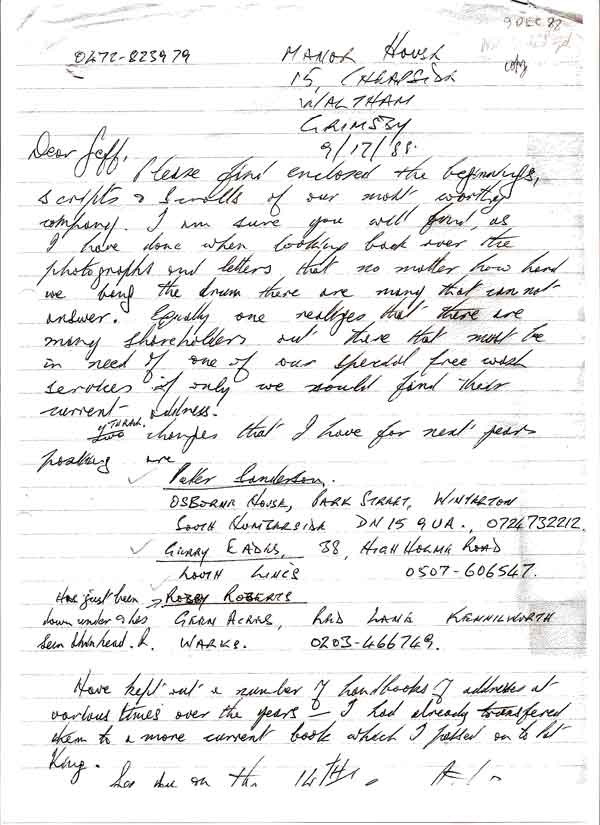 9 DEC
0472-823979
MANOR HOUSE
copy
15, CHEAPSIDE
WALTHAM
GRIMSBY
9/12/88.
Dear Geff,
Please find enclosed the beginnings,
scripts & scrolls of our most worthy
company. I am sure you will find, as
I have done when looking back over the
photographs and letters that no matter how hard
we bang the drum there are many that can not
answer. Equally one realizes that there are
many shareholders out there that must be
in need of one of our special free wash
services if only we could find their
current address.
THREE
changes that I have for next years
posting are
Peter Sanderson.
OSBORNE HOUSE, PARK STREET, WINTERTON
SOUTH HUMBERSIDE DN15 9UR., 0724732212.
GERRY EADES, 38, HIGH HOLME ROAD
LOUTH LINCS 0507-606547.
Has just been ROBBY ROBERTS
down under & has GREEN ACRES, RED LANE KENNILWORTH
seen Skinhead. R. WARKS. 0203-466749.
Have kept out a number of handbooks of addresses at
various times over the years – I had already transfered
them to a more current book which I passed on to
King.
See you on the 14TH.